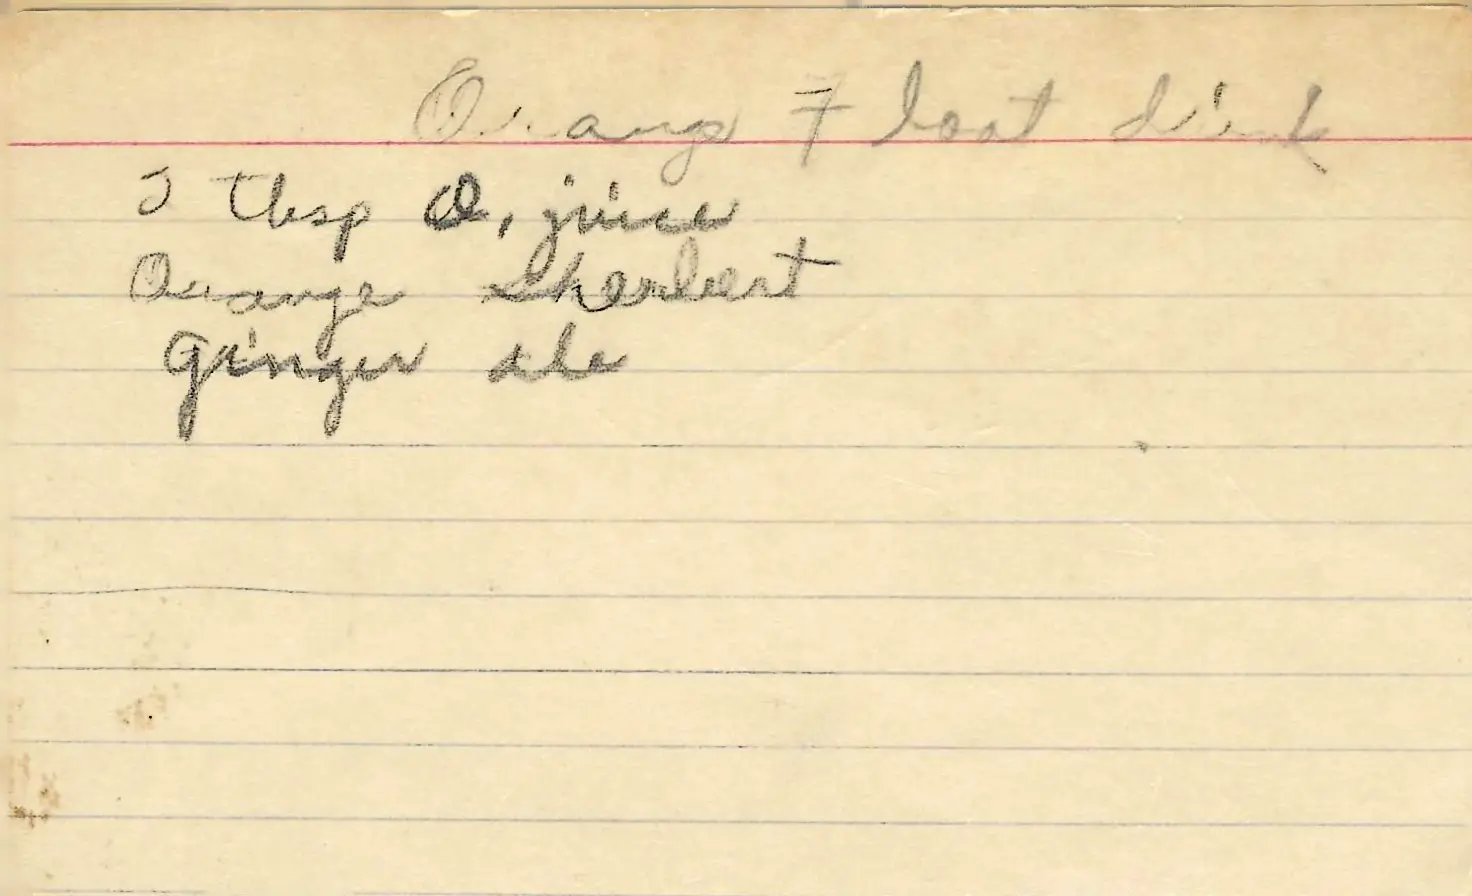 Orange Float drink
2 tbsp O. juice
Orange Sherbert
Ginger ale